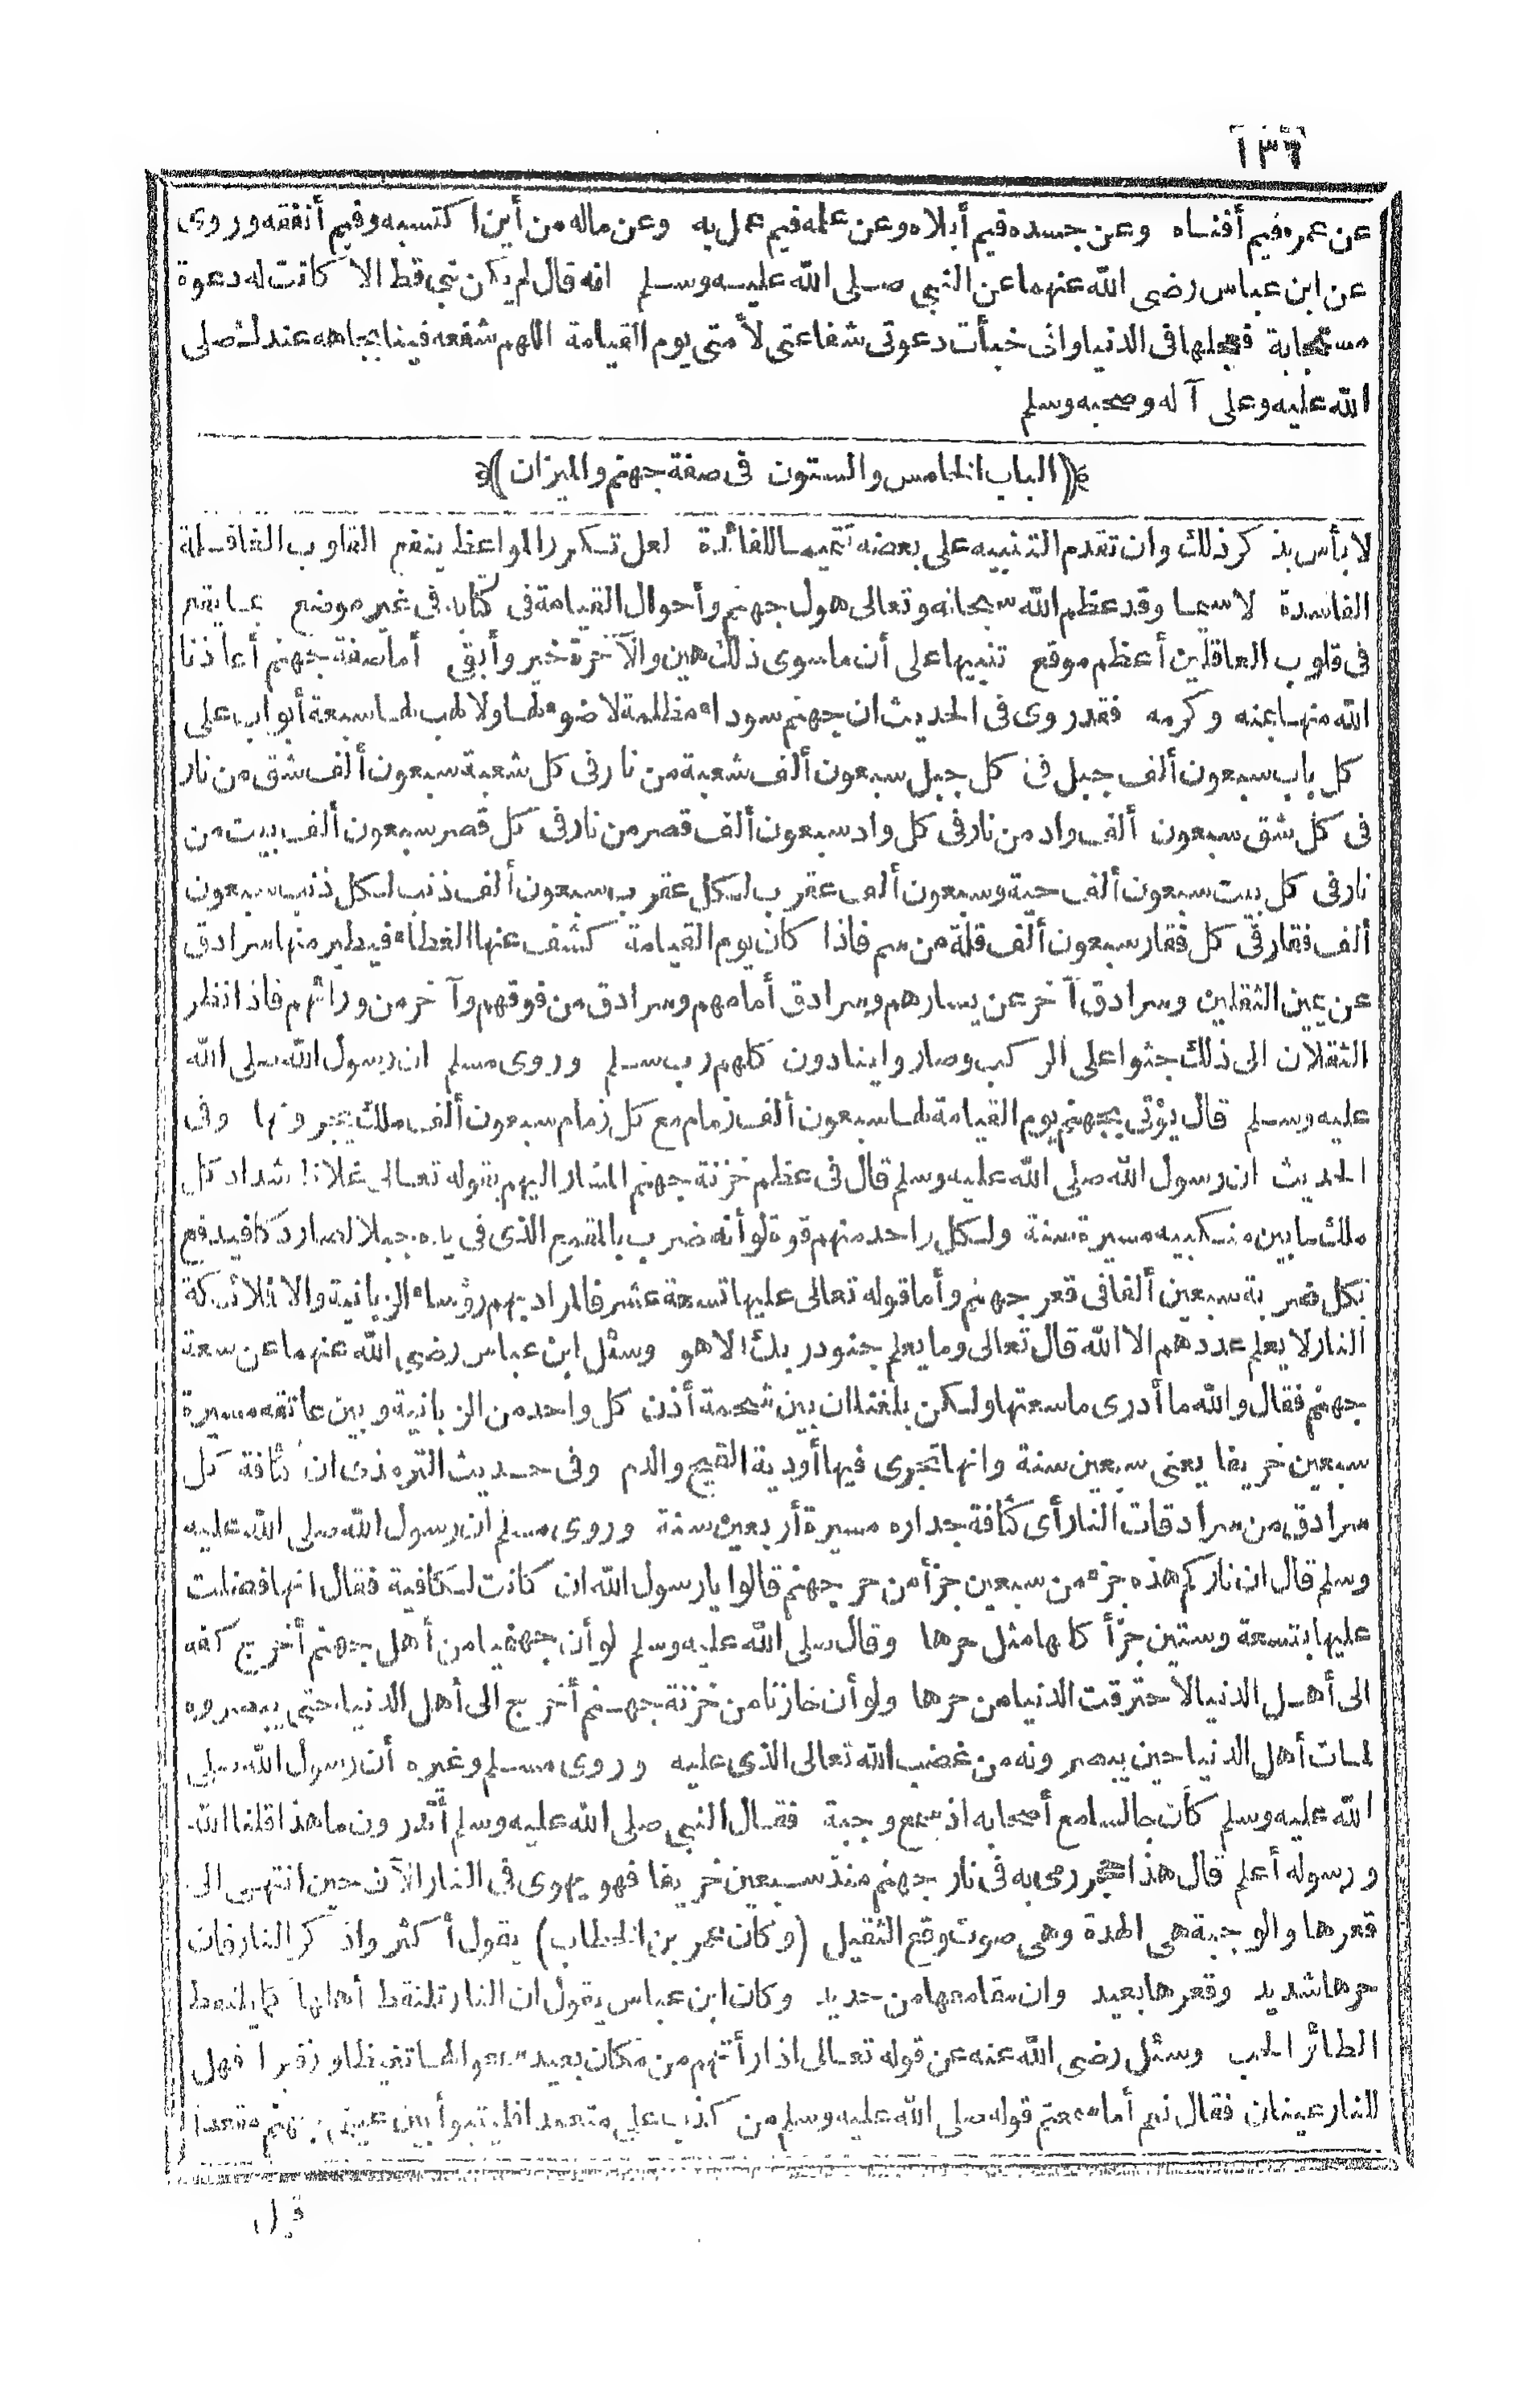 ١٣٦
عن عمره فيم أفناه وعن جسده فيم أبلاه وعن علمه فيم عمل به وعن ماله من أين اكتسبه وفيم أنفقه وروى
عن ابن عباس رضى الله عنهما عن النبي صلى الله عليه وسلم انه قال لم يكن نبي قط الا كانت له دعوة
مستجابة فجعلها فى الدنيا وانى خبأت دعوتى شفاعتى لأمتى يوم القيامة اللهم شفعه فينا بجاهه عندك صلى
الله عليه وعلى آله وصحبه وسلم
﴿الباب الخامس والستون فى صفة جهنم والميزان﴾
لا بأس بذكر ذلك وان تقدم التنبيه على بعضه تتميما للفائدة لعل تكرر المواعظ ينفع القلوب الغافلة
الفاسدة لا سيما وقد عظم الله سبحانه وتعالى هول جهنم وأحوال القيامة فى كتابه فى غير موضع بما يقع
فى قلوب العاقلين أعظم موقع تنبيها على أن ما سوى ذلك هين والآخرة خير وأبقى أما صفة جهنم أعاذنا
الله منها بمنه وكرمه فقد روى فى الحديث ان جهنم سوداء مظلمة لا ضوء لها ولا لهب لها سبعة أبواب على
كل باب سبعون ألف جبل فى كل جبل سبعون ألف شعبة من نار فى كل شعبة سبعون ألف شق من نار
فى كل شق سبعون ألف واد من نار فى كل واد سبعون ألف قصر من نار فى كل قصر سبعون ألف بيت من
نار فى كل بيت سبعون ألف حية وسبعون ألف عقرب لكل عقرب سبعون ألف ذنب لكل ذنب سبعون
ألف فقار فى كل فقار سبعون ألف قلة من سم فاذا كان يوم القيامة كشف عنها الغطاء فيطير منها سرادق
عن يمين الثقلين وسرادق آخر عن يسارهم وسرادق أمامهم وسرادق من فوقهم وآخر من ورائهم فاذا نظر
الثقلان الى ذلك جثوا على الركب وصاروا ينادون كلهم رب سلم وروى مسلم ان رسول الله صلى الله
عليه وسلم قال يؤتى بجهنم يوم القيامة لها سبعون ألف زمام مع كل زمام سبعون ألف ملك يجرونها وفى
الحديث ان رسول الله صلى الله عليه وسلم قال فى عظم خزنة جهنم المشار اليهم بقوله تعالى غلاظ شداد كل
ملك ما بين منكبيه مسيرة سنة ولكل واحد منهم قوة لو أنه ضرب بالمقمع الذى فى يده جبلا لصار دكا فيدفع
بكل ضربة سبعين ألفا فى قعر جهنم وأما قوله تعالى عليها تسعة عشر فالمراد بهم رؤساء الزبانية والا فملائكة
النار لا يعلم عددهم الا الله قال تعالى وما يعلم جنود ربك الا هو وسئل ابن عباس رضي الله عنهما عن سعة
جهنم فقال والله ما أدرى ما سعتها ولكن بلغنا ان بين شحمة أذن كل واحد من الزبانية وبين عاتقه مسيرة
سبعين خريفا يعنى سبعين سنة وانها تجرى فيها أودية القيح والدم وفى حديث الترمذى ان كثافة كل
سرادق من سرادقات النار أى كثافة جداره مسيرة أربعين سنة وروى مسلم ان رسول الله صلى الله عليه
وسلم قال ان ناركم هذه جزء من سبعين جزأ من حر جهنم قالوا يا رسول الله ان كانت لكافية فقال انها فضلت
عليها بتسعة وستين جزأ كلها مثل حرها وقال صلى الله عليه وسلم لو أن جهنميا من أهل جهنم أخرج كفه
الى أهل الدنيا لاحترقت الدنيا من حرها ولو أن خازنا من خزنة جهنم أخرج الى أهل الدنيا حتى يبصروه
لمات أهل الدنيا حين يبصرونه من غضب الله تعالى الذى عليه وروى مسلم وغيره أن رسول الله صلى
الله عليه وسلم كان جالسا مع أصحابه اذ سمع وجبة فقال النبي صلى الله عليه وسلم أتدرون ما هذا قلنا الله
ورسوله أعلم قال هذا حجر رمى به فى نار جهنم منذ سبعين خريفا فهو يهوى فى النار الآن حين انتهى الى
قعرها والوجبة هى الهدة وهى صوت وقع الثقيل (وكان عمر بن الخطاب) يقول أكثروا ذكر النار فان
حرها شديد وقعرها بعيد وان مقامعها من حديد وكان ابن عباس يقول ان النار تلتقط أهلها كما يلتقط
الطائر الحب وسئل رضى الله عنه عن قوله تعالى اذا رأتهم من مكان بعيد سمعوا لها تغيظا وزفيرا فهل
للنار عينان فقال نعم أما سمعتم قوله صلى الله عليه وسلم من كذب علي متعمدا فليتبوأ بين عينى جهنم مقعدا
قيل